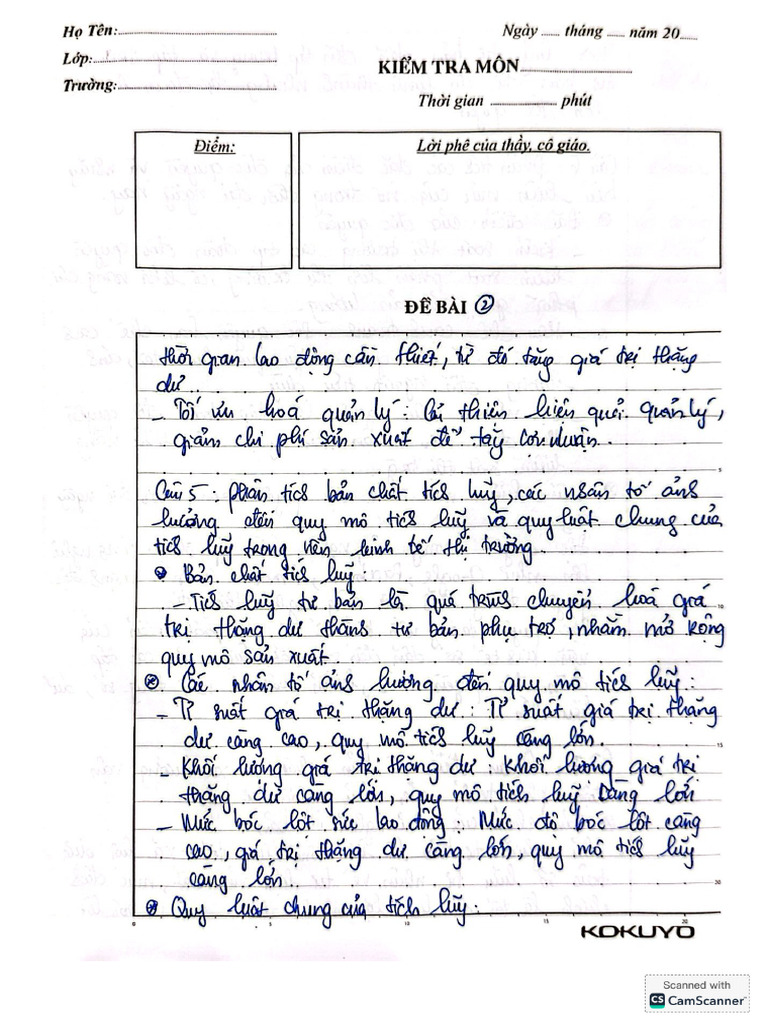 Họ Tên:
Ngày ...... tháng ...... năm 20.....
Lớp:
KIỂM TRA MÔN
Trường:
Thời gian .................. phút
Điểm:
Lời phê của thầy, cô giáo.
ĐỀ BÀI ②
thời gian lao động cần thiết, từ đó tăng giá trị thặng
dư.
- Tối ưu hoá quản lý: Cải thiện hiệu quả quản lý,
giảm chi phí sản xuất để tăg lợi nhuận.
Câu 5: phân tích bản chất tích luỹ, các nhân tố ảnh
hưởng đến quy mô tích luỹ và quy luật chung của
tích luỹ trong nền kinh tế thị trường
Bản chất tích luỹ:
- Tích luỹ tư bản là quá trình chuyển hoá giá
trị thặng dư thành tư bản phụ trợ, nhằm mở rộng
quy mô sản xuất.
Các nhân tố ảnh hưởng đến quy mô tích luỹ:
- Tỉ suất giá trị thặng dư: Tỉ suất giá trị thặng
dư càng cao, quy mô tích luỹ càng lớn.
- Khối lượng giá trị thặng dư: Khối lượng giá trị
thặng dư càng lớn, quy mô tích luỹ càng lớn
- Mức bóc lột sức lao động: Mức độ bóc lột càng
cao, giá trị thặng dư càng lớn, quy mô tích luỹ
càng lớn.
Quy luật chung của tích luỹ:
5
10
15
30
0 5 10 15 20
KOKUYO
Scanned with
CS CamScanner